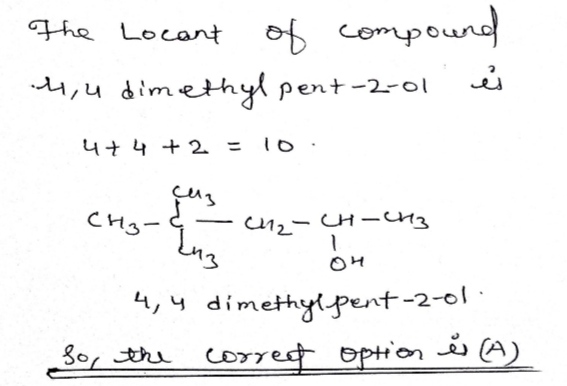 The Locant of compound
4,4 dimethyl pent-2-ol is
4+4+2 = 10.
CH3
CH3-C-CH2-CH-CH3
CH3 OH
4,4 dimethyl pent-2-ol.
So, the correct option is (A)